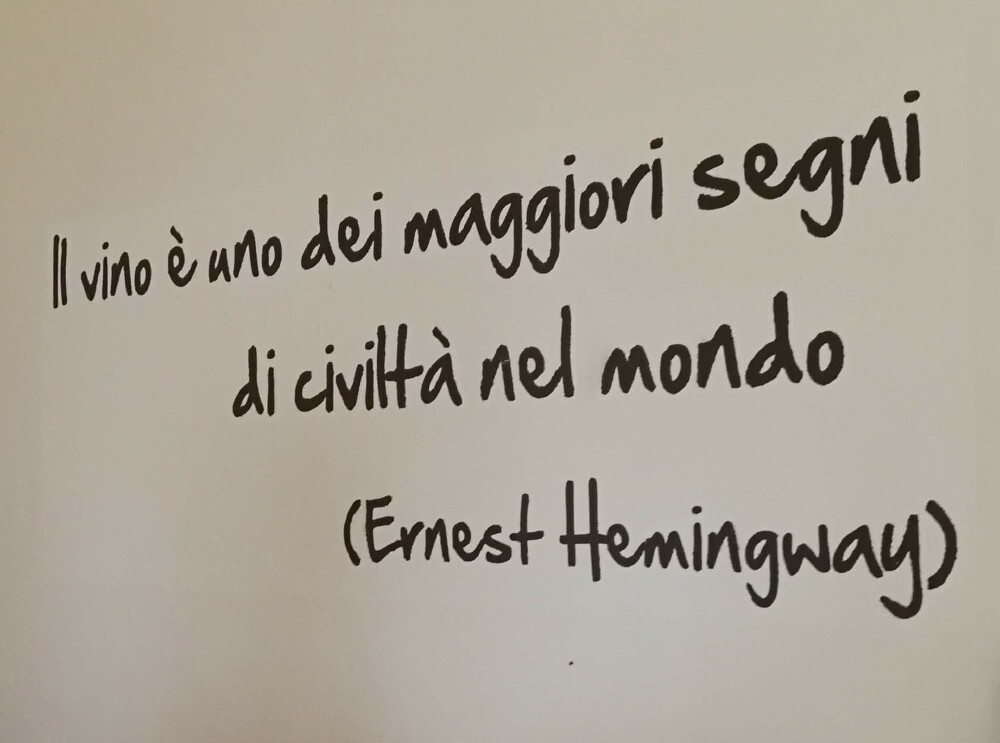 Il vino è uno dei maggiori segni
di civiltà nel mondo
(Ernest Hemingway)